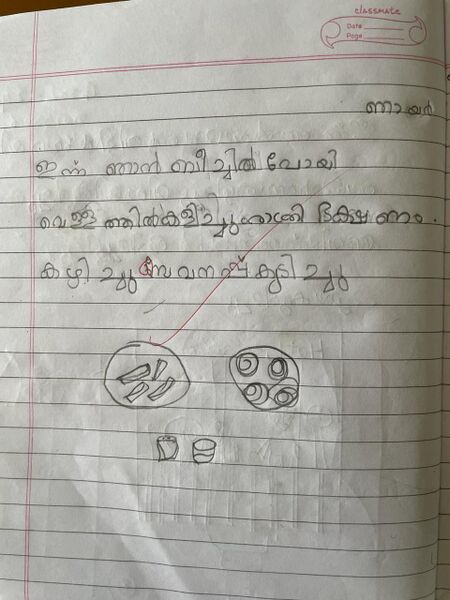 classmate
Date
Page
ഞായർ
ഇന്ന് ഞാൻ ബീച്ചിൽ പോയി
വെള്ളത്തിൽകളിച്ചു രാത്രി ഭക്ഷണം.
കഴിച്ചു സേവനപ്പ് കുടിച്ചു